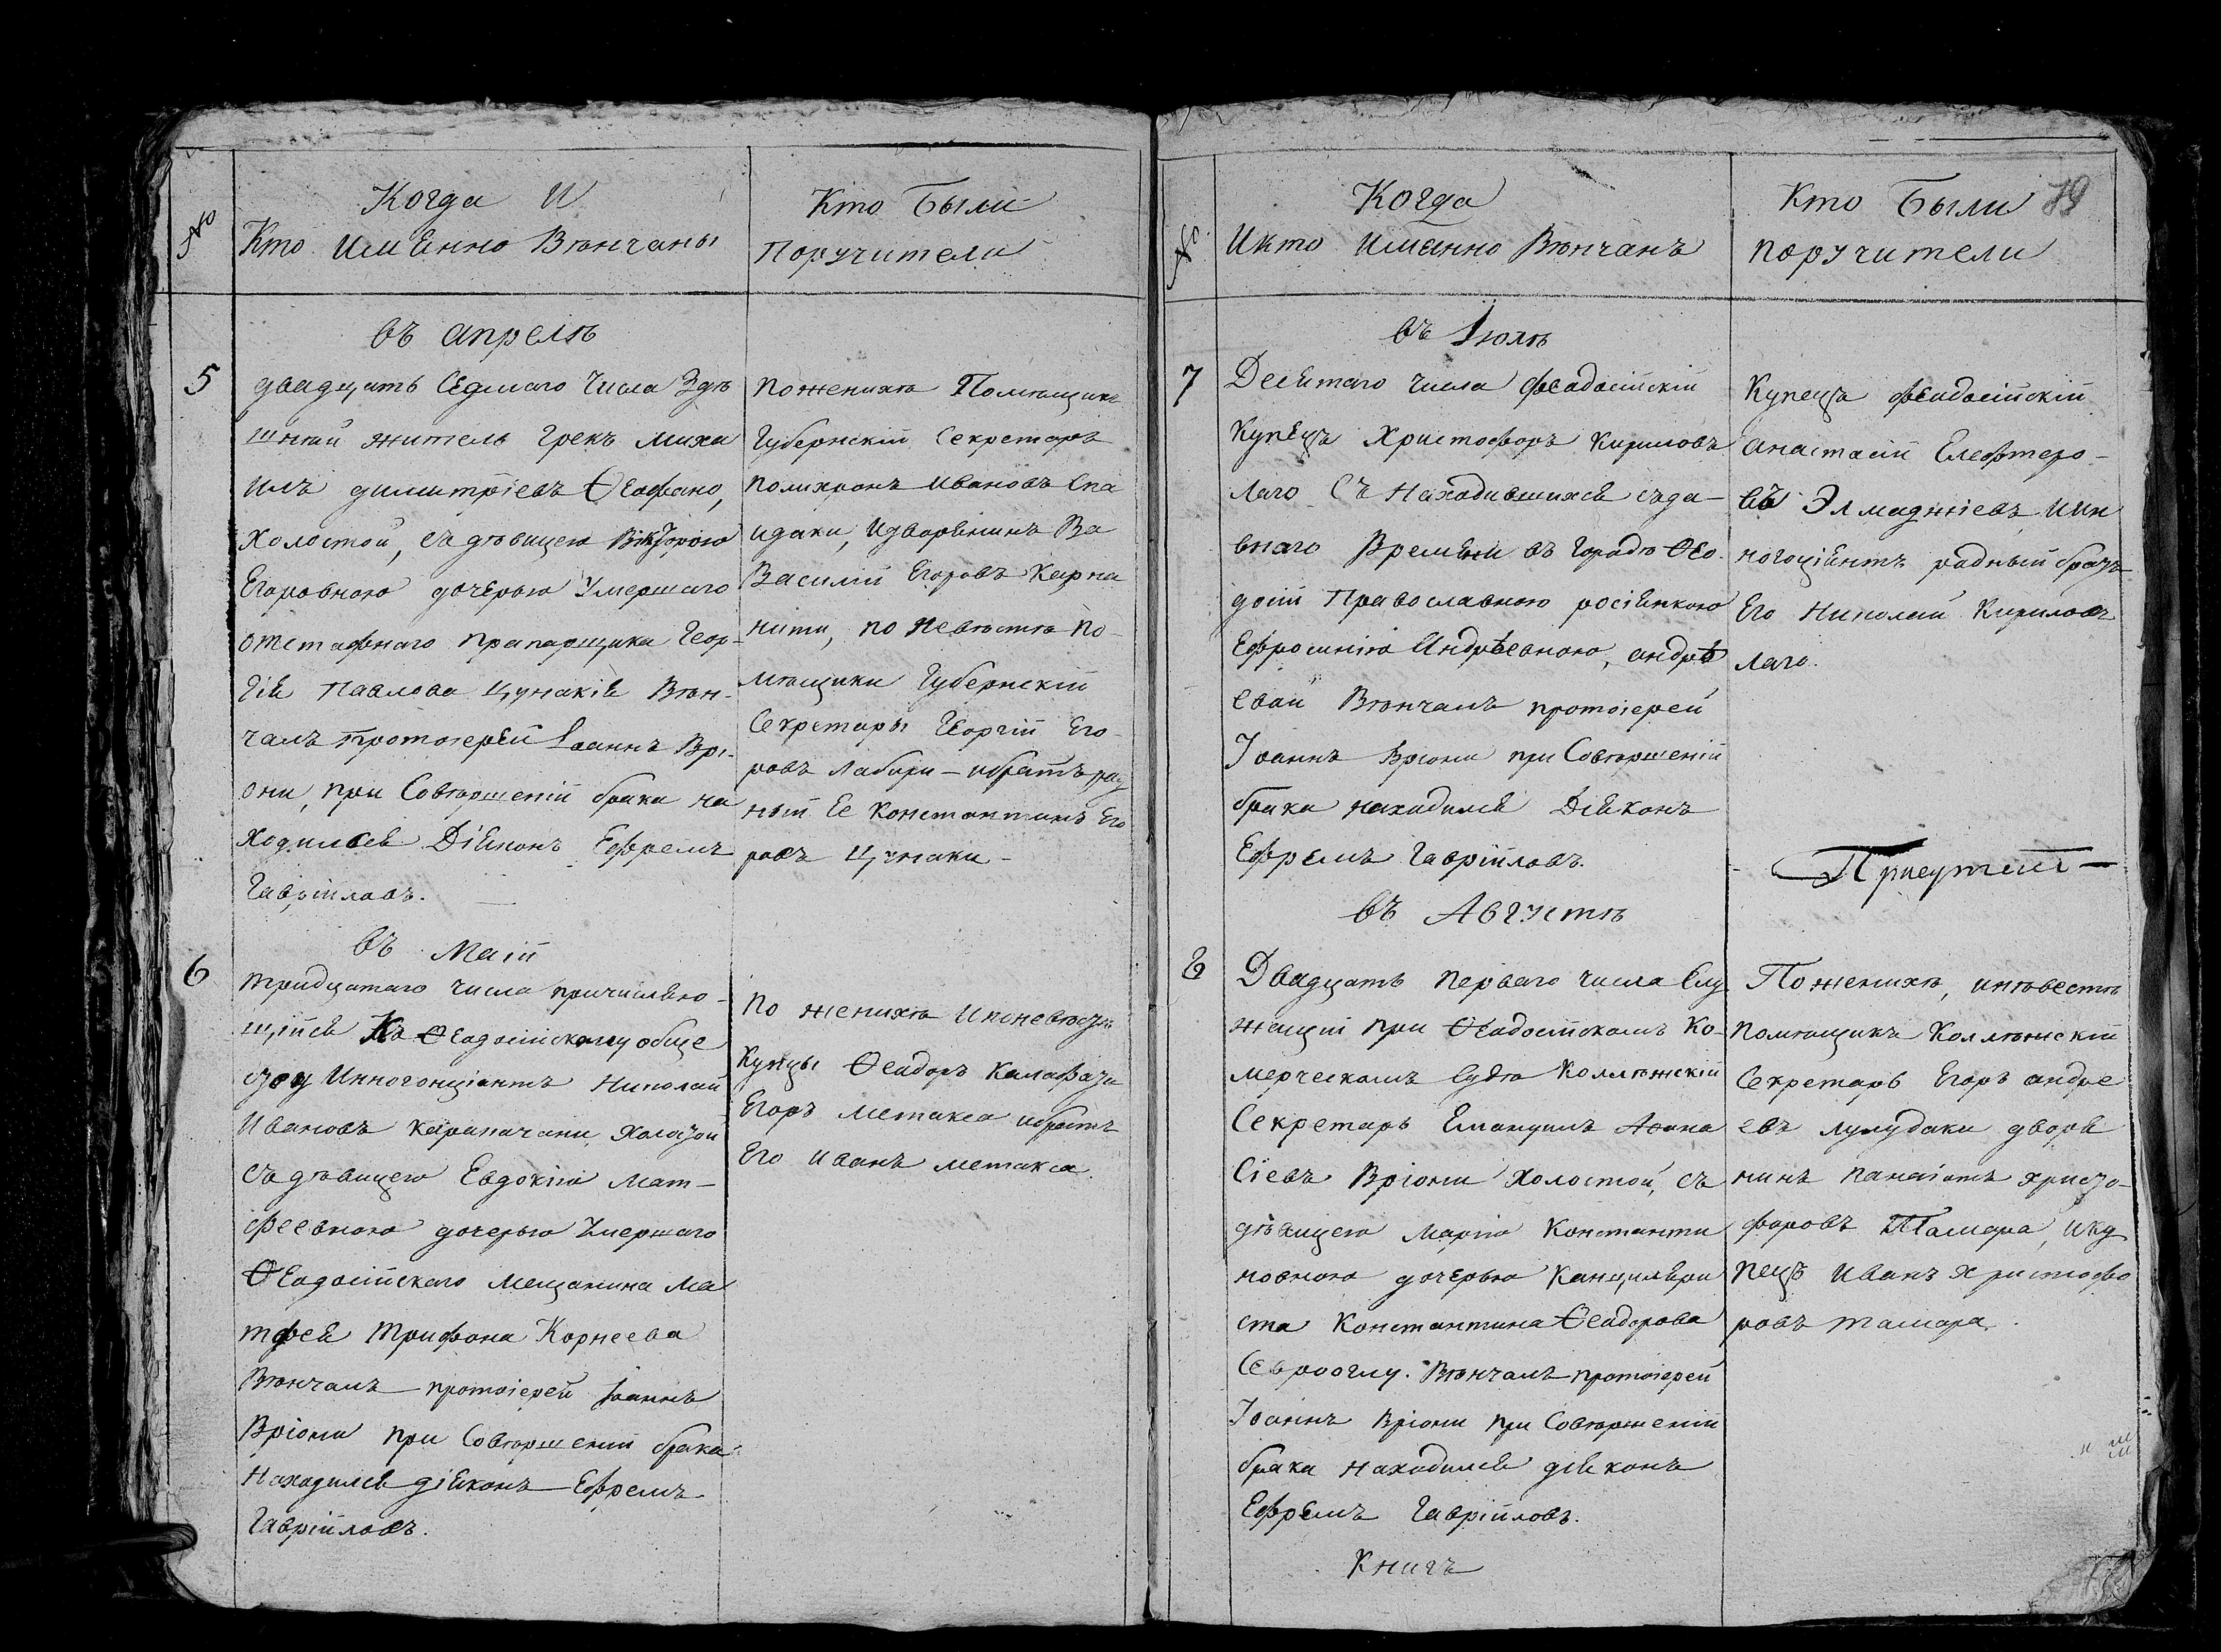 №
Когда И
Кто Имѣнно Вѣнчаны
Кто Были
Поручители
въ апрелѣ
5
двадцать Седмаго Числа Здѣ
шнѣй житель Грекъ Миха
илъ димитріевъ Ѳеофано,
Холостой, съ дѣвицею Викторою
Егоровною дочерью Умершаго
отставнаго прапорщика Геор-
гія Павлова Цунакія Вѣн-
чалъ протоіерей Іоаннъ Врі-
они, при Совѣршеній брака на
ходился Діяконъ Ефремъ
Гавріиловъ.
По жениху Помѣщикъ
Губернскій Секретарь
Полихронъ Ивановъ Спа
идаки, Идворянинъ Ва
Василій Егоровъ Карпа
нити, по Невѣстѣ По-
мѣщики Губернскій
Секретарь Георгій Его-
ровъ Лабири - ибратъ род
ный Ее Константинъ Его
ровъ Цунаки -
въ Маіи
6
тридцатаго числа причисляю-
щійся Къ Ѳеодосійскому обще
ству Инногонціантъ Николай
Ивановъ Карапачани, Холостой
съ дѣвицею Евдокіею Мат-
феевною дочерью Умершаго
Ѳеодосійскаго Мещанина Ма
тфея Трифона Корнеева
Вѣнчалъ протоіерей Іоаннъ
Вріони при Совѣршеній брака
Находился діяконъ Ефремъ
Гавріиловъ.
По жениху Ипоневѣсте
Купцы Ѳеодоръ Калафати
Егоръ Метакса ибратъ
Его Иванъ Метакса
№
Когда
Икто Имянно Вѣнчанъ
Кто Были 79
поручители
въ Іюлѣ
7
Десятаго числа феодосійскій
Купецъ Христофоръ Кириловъ
Лаго Съ Находившихся съда-
внаго Времяни въ Городѣ Ѳео-
досіи Православною росіянкою
Ефросиніею Андрѣевною, андрѣ
евой Вѣнчалъ протоіерей
Іоаннъ Вріони при Совѣршеній
брака находился Діяконъ
Ефремъ Гавріиловъ.
Купецъ феодосійскій
Анастасій Елефтеро-
въ Элмаджіевъ Иин
ногоціянтъ родный братъ
Его Николай Кириловъ
Лаго.
въ Августѣ
8
Двадцать перваго числа Слу
жащій при Ѳеодосійскомъ Ко-
мерческомъ Судѣ Коллѣжскій
Секретарь Емануилъ Аѳана
Сіевъ Вріони Холостой, съ
дѣвицею Маріею Константи
новною дочерью Канцляри
ста Константина Ѳеодорова
Севрооглу. Вѣнчалъ протоіерей
Іоаннъ Вріони при Совѣршеній
брака находился діяконъ
Ефремъ Гавріиловъ.
По жениху, инѣвестѣ
помѣщикъ Коллѣжскій
Секретарь Егоръ андре
евъ Лулудаки дворя
нинъ Панаіотъ христо-
форовъ Тамара, ику
пецъ Иванъ Христофо
ровъ Тамара.
Книгъ